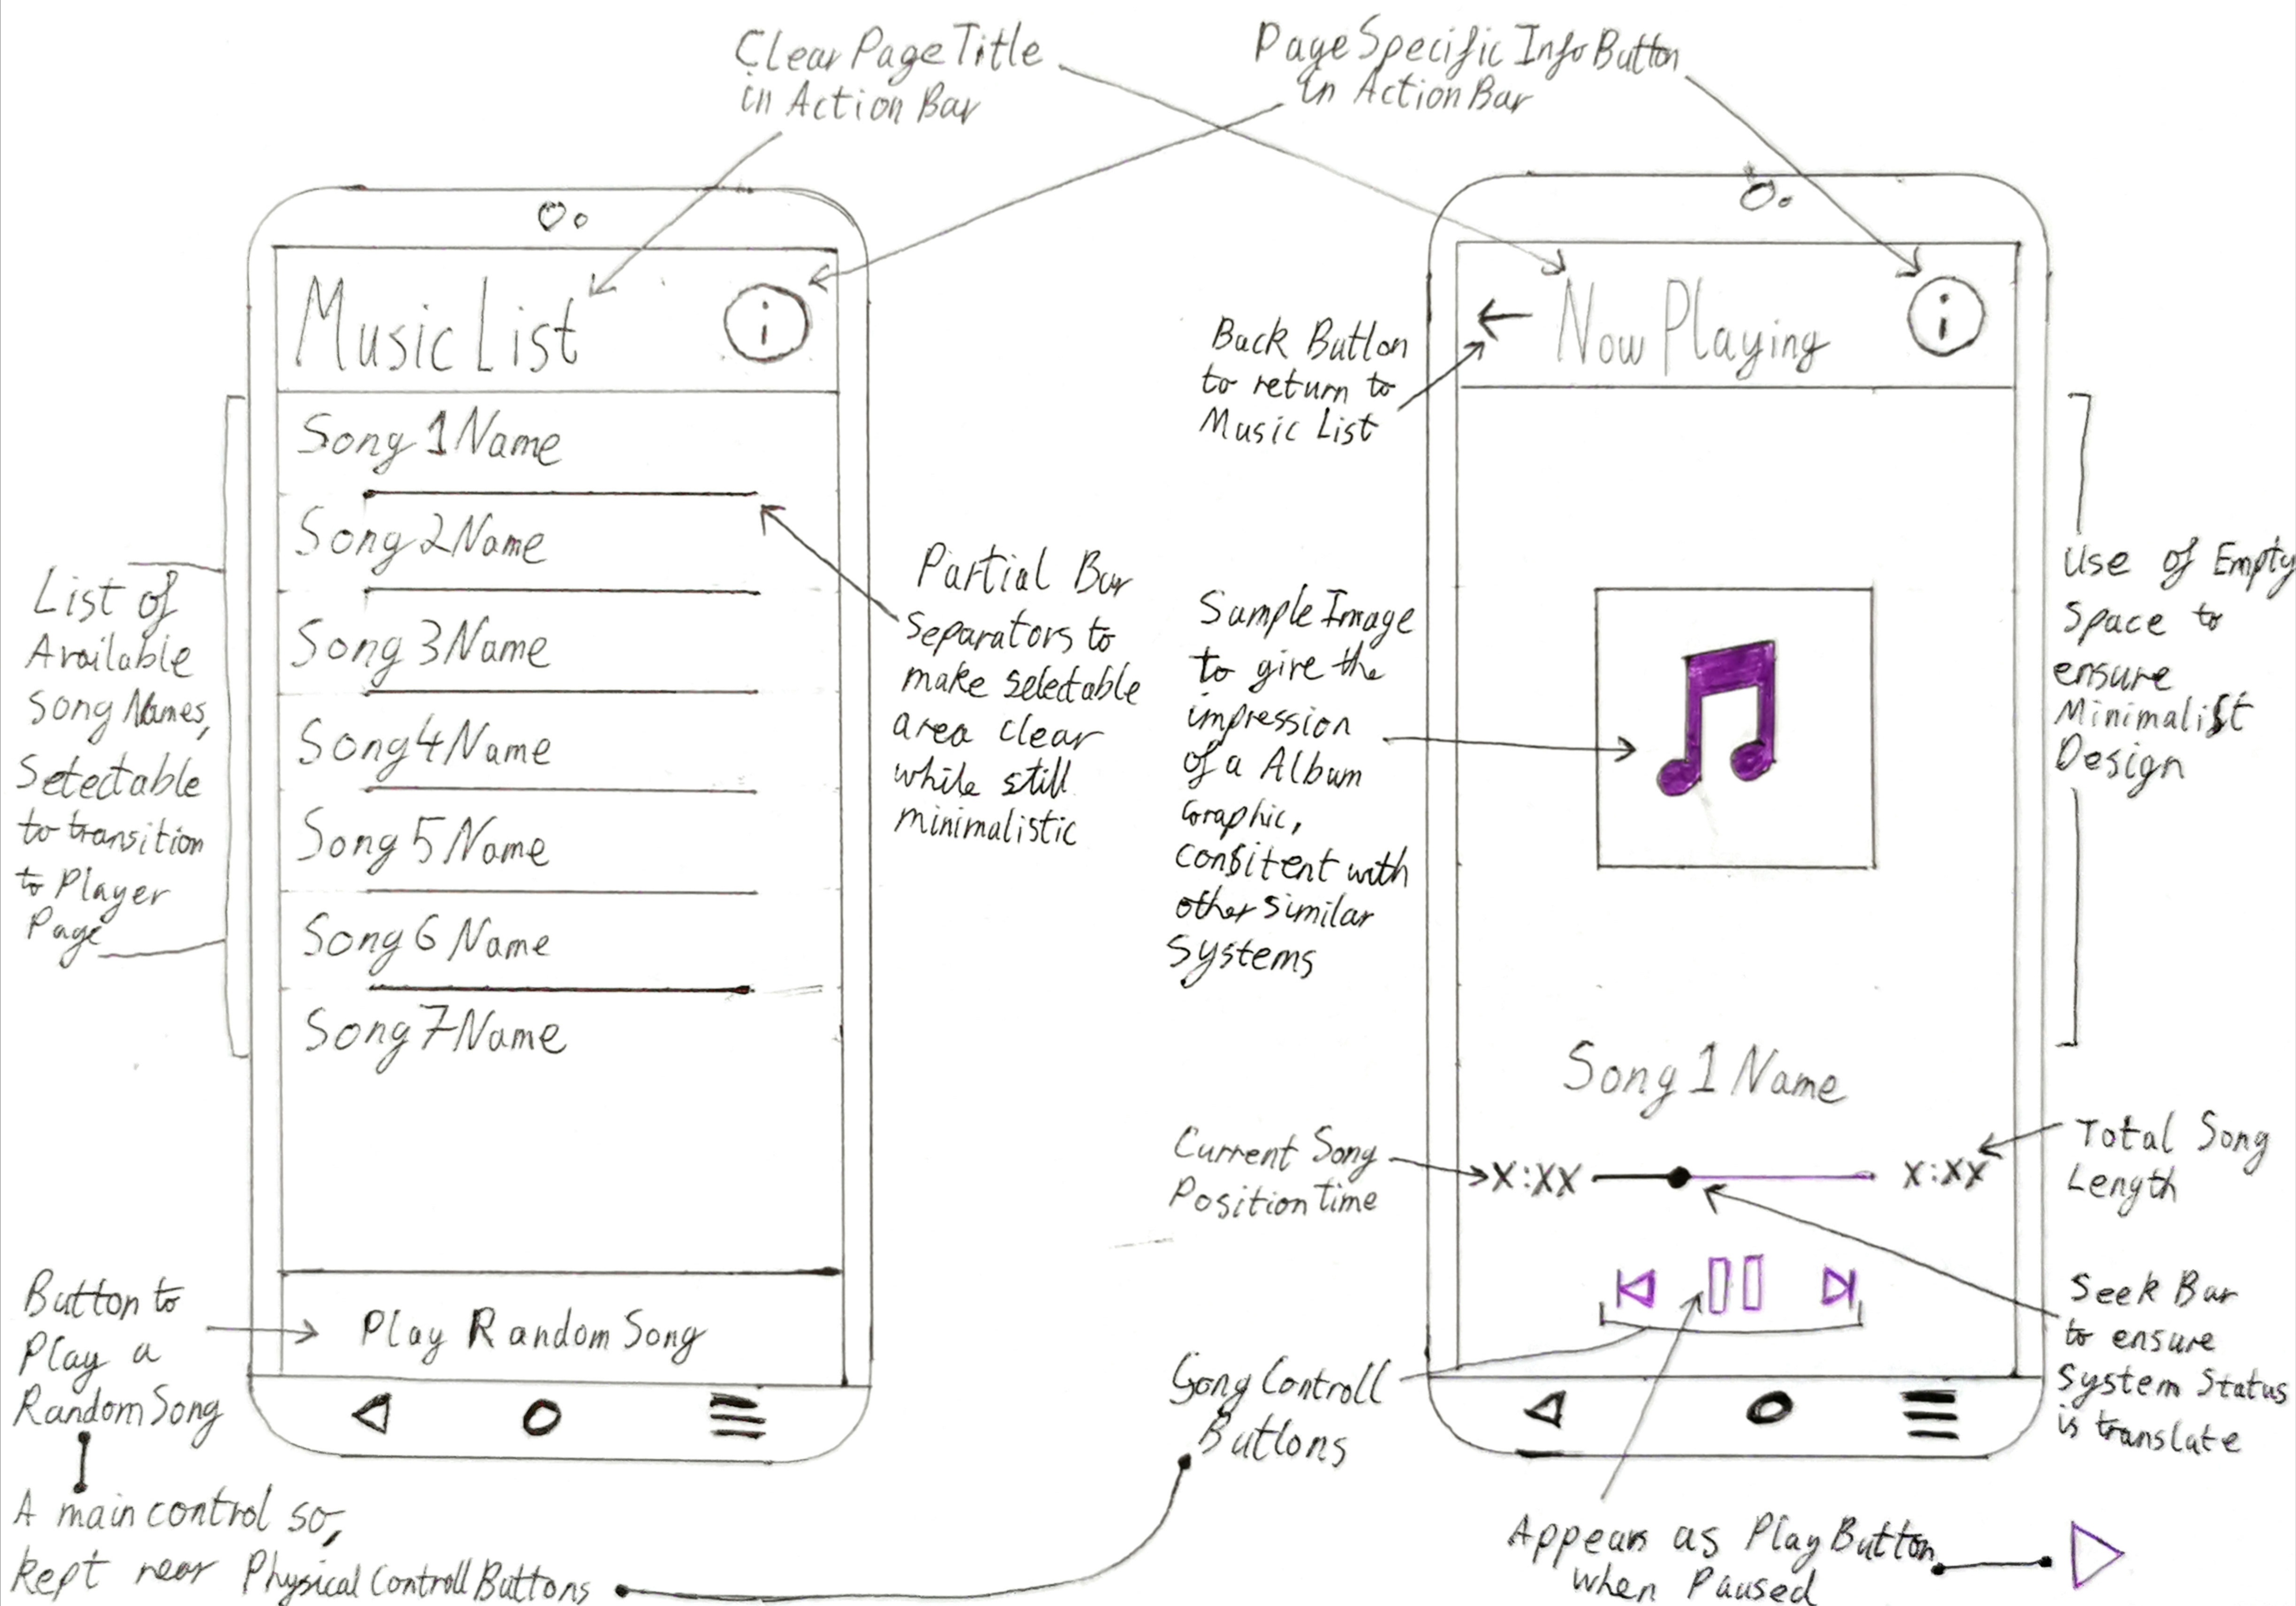 Clear Page Title
in Action Bar
Page Specific Info Button
in Action Bar
Music List
i
Song 1 Name
Song 2 Name
Song 3 Name
Song 4 Name
Song 5 Name
Song 6 Name
Song 7 Name
Play Random Song
List of
Available
Song Names,
Selectable
to transition
to Player
Page
Partial Bar
Separators to
make selectable
area clear
while still
minimalistic
Button to
Play a
Random Song
A main control so,
kept near Physical Controll Buttons
Now Playing
i
Back Button
to return to
Music List
Sample Image
to give the
impression
of a Album
Graphic,
consitent with
other similar
Systems
Use of Empty
Space to
ensure
Minimalist
Design
Song 1 Name
Current Song
Position time
X:XX
X:XX
Total Song
Length
Seek Bar
to ensure
System Status
is translate
Song Controll
Buttons
Appears as Play Button
when Paused